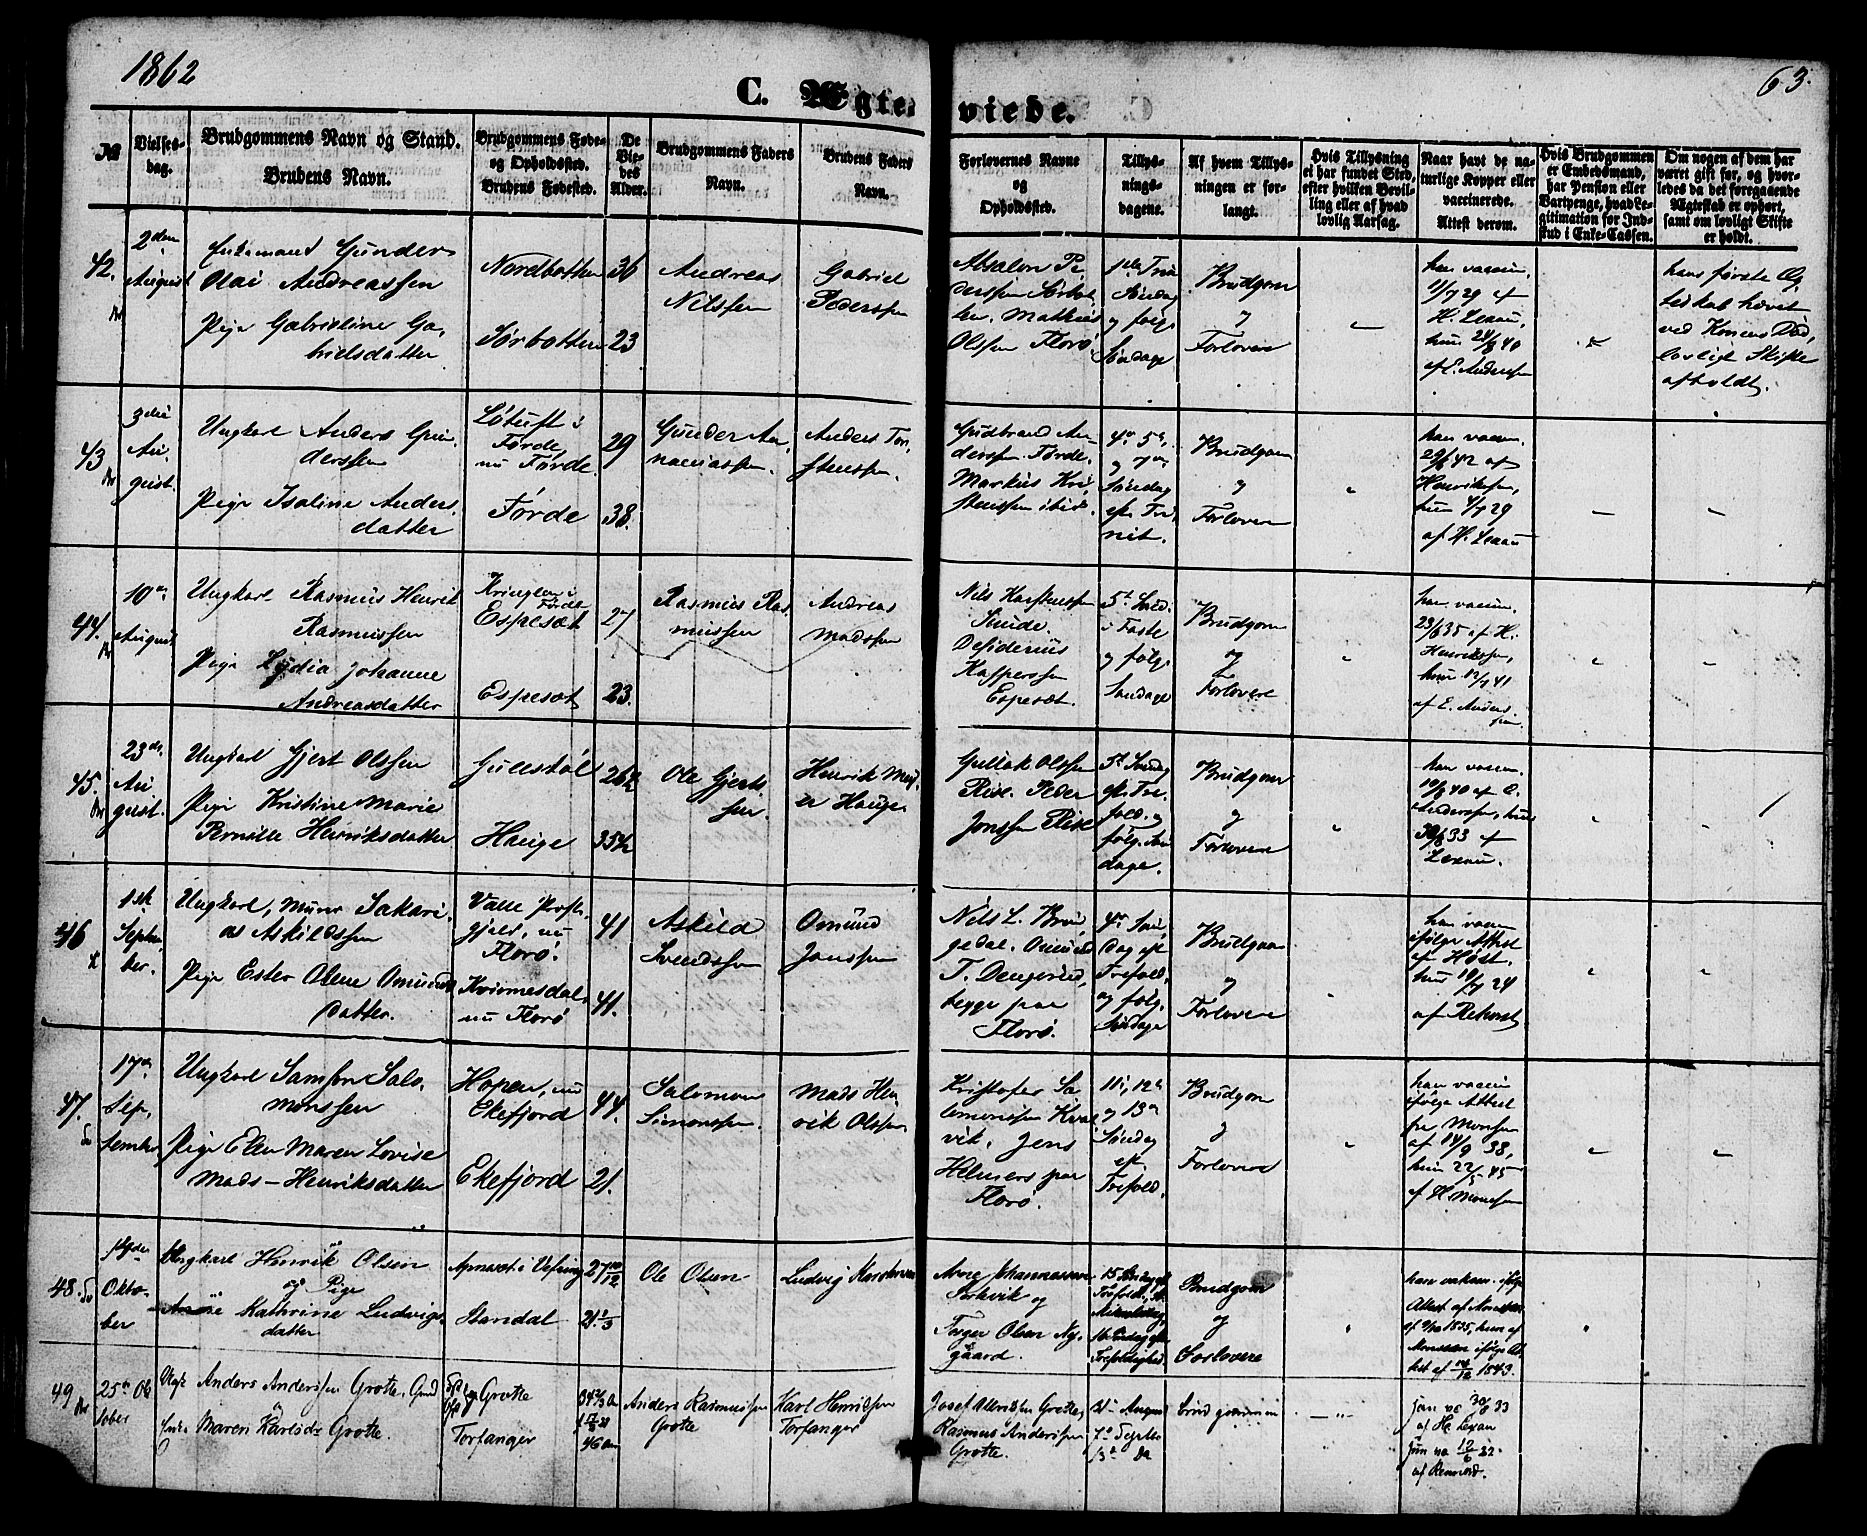 1862
63.
C. Ægte-
viede.
№
Vielses-
dag.
Brudgommens Navn og Stand.
Brudens Navn.
Brudgommens Føde-
og Opholdssted.
Brudens Fødested.
De
Vie-
des
Alder.
Brudgommens Faders
Navn.
Brudens Faders
Navn.
Forlovernes Navne
og
Opholdssted.
Tillys-
nings-
dagene.
Af hvem Tillys-
ningen er for-
langt.
Hvis Tillysning
ei har fundet Sted,
efter hvilken Bevil-
ling eller af hvad
lovlig Aarsag.
Naar havt de na-
turlige Kopper eller
vaccinerede.
Attest derom.
Hvis Brudgommen
er Embedsmand,
har Pension eller
Vartpenge, hvad Le-
gitimation for Ind-
skud i Enke-Cassen.
Om nogen af dem har
været gift før, og hvor-
ledes da det foregaaende
Ægteskab er ophørt,
samt om lovligt Skifte
er holdt.
42.
2den
August
Enkemand Gunder
Olai Andreassen
Pige Gabrieline Ga-
brielsdatter
Nordbotten
Sørbotten
36
23
Andreas
Nilssen
Gabriel
Pederssen
Absalon Pe-
derssen Sørbot-
ten. Mathias
Olssen Florø
Søndag
og følg.
Søndage
Brudgom
og
Forlovere
han vaccin.
11/7 29 af
H. Lexau,
hun 24/8 40
af E. Anderssen
hans første Æg-
teskab hævet
ved Konens Død,
lovligt Skifte
afholdt.
43
3die
Au-
gust.
Ungkarl Anders Gun-
derssen
Pige Isaline Anders
datter
Førde
nu Førde
Førde
29
38.
Gunder An-
naniassen.
Anders Tor-
stenssen.
Gudbrand An-
derssen Førde.
Markus Kri-
stenssen ibid.
4de 5te
og 7de
Søndag
eft. Tri-
nit.
Brudgom
og
Forlovere
han vaccin.
29/6 42 af
Henrikssen,
hun 4/7 29
af H. Lexau
44.
10de
August
Ungkarl Rasmus Henrik
Rasmussen
Pige Lydia Johanne
Andreasdatter
Kringlen i
Førde
Espesæt
Espesæt
27
23.
Rasmus Ras-
mussen
Andreas
Madssen
Nils Karstenssen
Sunde.
Desiderius
Kasperssen
Espesæt.
5te Sønd.
i Faste
og følg.
Søndage
Brudgom
og
Forlovere
han vaccin.
23/6 35 af H.
Henrikssen,
hun 12/7 41
af E. Anders-
sen
45.
23de
Au-
gust.
Ungkarl Gjert Olssen
Pige Kristine Marie
Pernille Henriksdatter
Gullestøl
Hauge
26½
35½
Ole Gjerts-
sen.
Henrik Mad-
er Hauge.
Gullak Olssen
Rise. Peder
Jonssen Rise
5te Søndag
eft. Tre-
fold. og
følg. Søn-
dage.
Brudgom
og
Forlovere
han vaccin.
19/8 40 af E.
Anderssen, hun
33 af
Lexau.
46
1ste
Septem-
ber.
Ungkarl, Murer Sakari-
as Askildssen
Pige Ester Olene Omunds
datter.
Valle Præste-
gjeld, nu
Florø.
Kvinnesdal,
nu Florø
41
41.
Askild
Svendssen
Omund
Jonssen
Nils L. Brin-
gedal. Omund
T. Dengerud,
begge paa
Florø.
4de Søn-
dag eft.
Trefold.
og følg.
Søndage
Brudgom
og
Forlovere
han vaccin
ifølge Attest
af Høst.
hun 19/7 24
af Rekvist
47.
17de
Sep-
tember
Ungkarl Samson Salo-
monssen
Pige Ellen Maren Lovise
Mads-Henriksdatter
Hopen, nu
Ekefjord
Ekefjord
44.
21.
Salomon
Simonssen.
Mads Hen-
rik Olssen.
Kristofer Sa-
lomonssen Kval-
vik. Jens
Helmers paa
Florø.
11te, 12te
og 13de
Søndag
eft.
Trefold.
Brudgom
og
Forlovere
han vaccin
ifølge Attest
fra Monssen
af 14/9 38,
hun 22/5 45
af H. Monssen
48.
Okto-
ber
Ungkarl Henrik Olsen
og Pige
Anne Kathrine Ludvigs-
datter
Apnesæt i Vefring
Standal
27 10/12
21 1/3
Ole Olsen
Ludvig Karstensen
Arne Johannessen
Sørvik og
Torger Olsen Ny-
gaard.
15 Søndag eft
Trefold.,
Mikelsdag,
16 Søndag eft
Trefoldighed.
Brudgom
og
Forlovere
han vakcin. ifølge
Attest af Monssen
af 9/10 1835, hun af
Monssen ifølge At-
test af 14/12 1843.
49
25de Ok-
tober
Ungk. Anders Anderssen Grotte. Gmd
Enke Maren Karlsdr Grotte.
Grotte
Torfanger
46
Anders Rasmussen
Grotte
Karl Henrikssen
Torfanger
Josef Allrikssen Grotte,
Rasmus Anderssen
Grotte.
31 August
7de Septbr
brudgommen
han va 30/6 33
af H. Lexau
hun va 12/6 22.